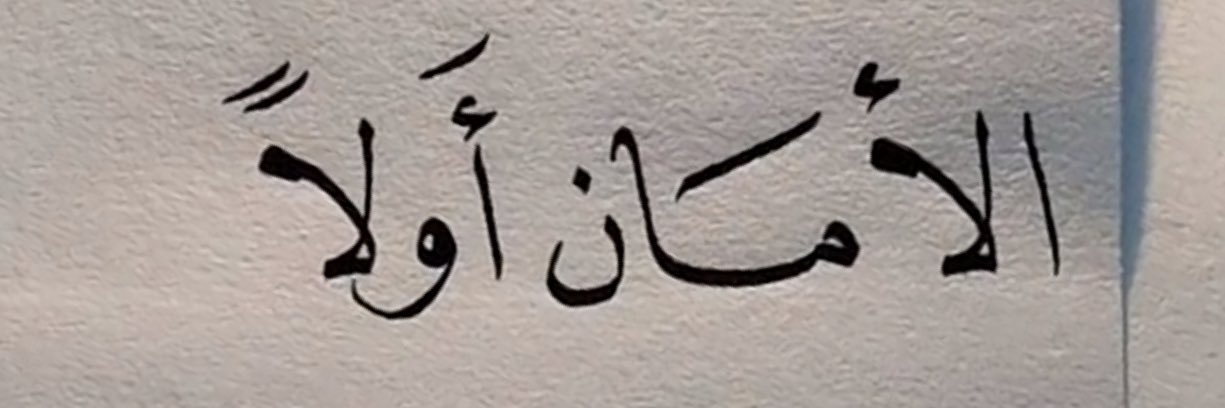 الأمَان أَولاً